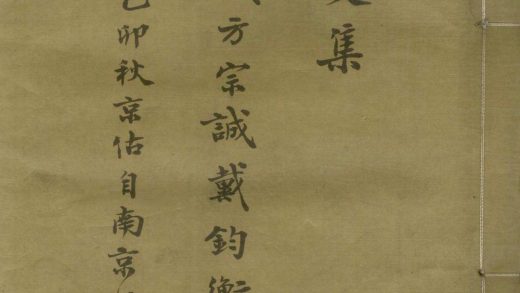 集
方宗誠戴鈞衡
卯秋京估自南京